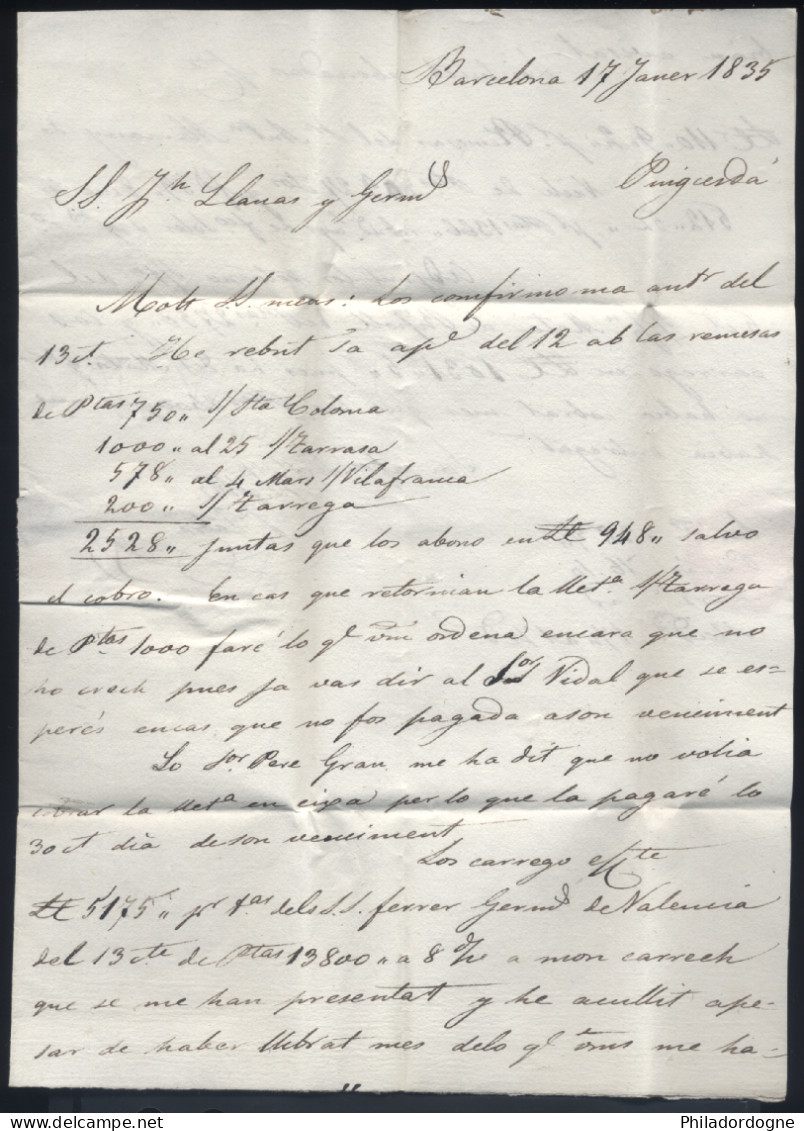 Barcelona 17 Janer 1835
S.S. Jph Llanas y Germs Puigcerdá
Molt S.S. meus: Los comfirmo ma antr del
13 ct. He rebut sa apc del 12 ab las remesas
de Ptas 750,, s/ Sta Coloma
1000,, al 25 s/ Tarrasa
578,, al 4 Mars s/ Vilafranca
200,, s/ Tarrega
2528,, juntas que los abono en ₶ 948,, salvo
el cobro. En cas que retornian la lleta s/ Tarrega
de Ptas 1000 faré lo q vm ordena encara que no
ho crech pues ja vas dir al Sor Vidal que se es=
perés encas que no fos pagada a son venciment
Lo Sor Pere Grau me ha dit que no volia
cobrar la lleta en eixa per lo que la pagaré lo
30 ct dia de son venciment
Los carrego
₶ 5175,, pr tas dels S.S. Ferrer Germs de Valencia
del 13 cte de Ptas 13800,, a 8 a mon carrech
que se me han presentat y he acullit ape=
sar de haber llibrat mes delo q vms me ha=
Philadordogne